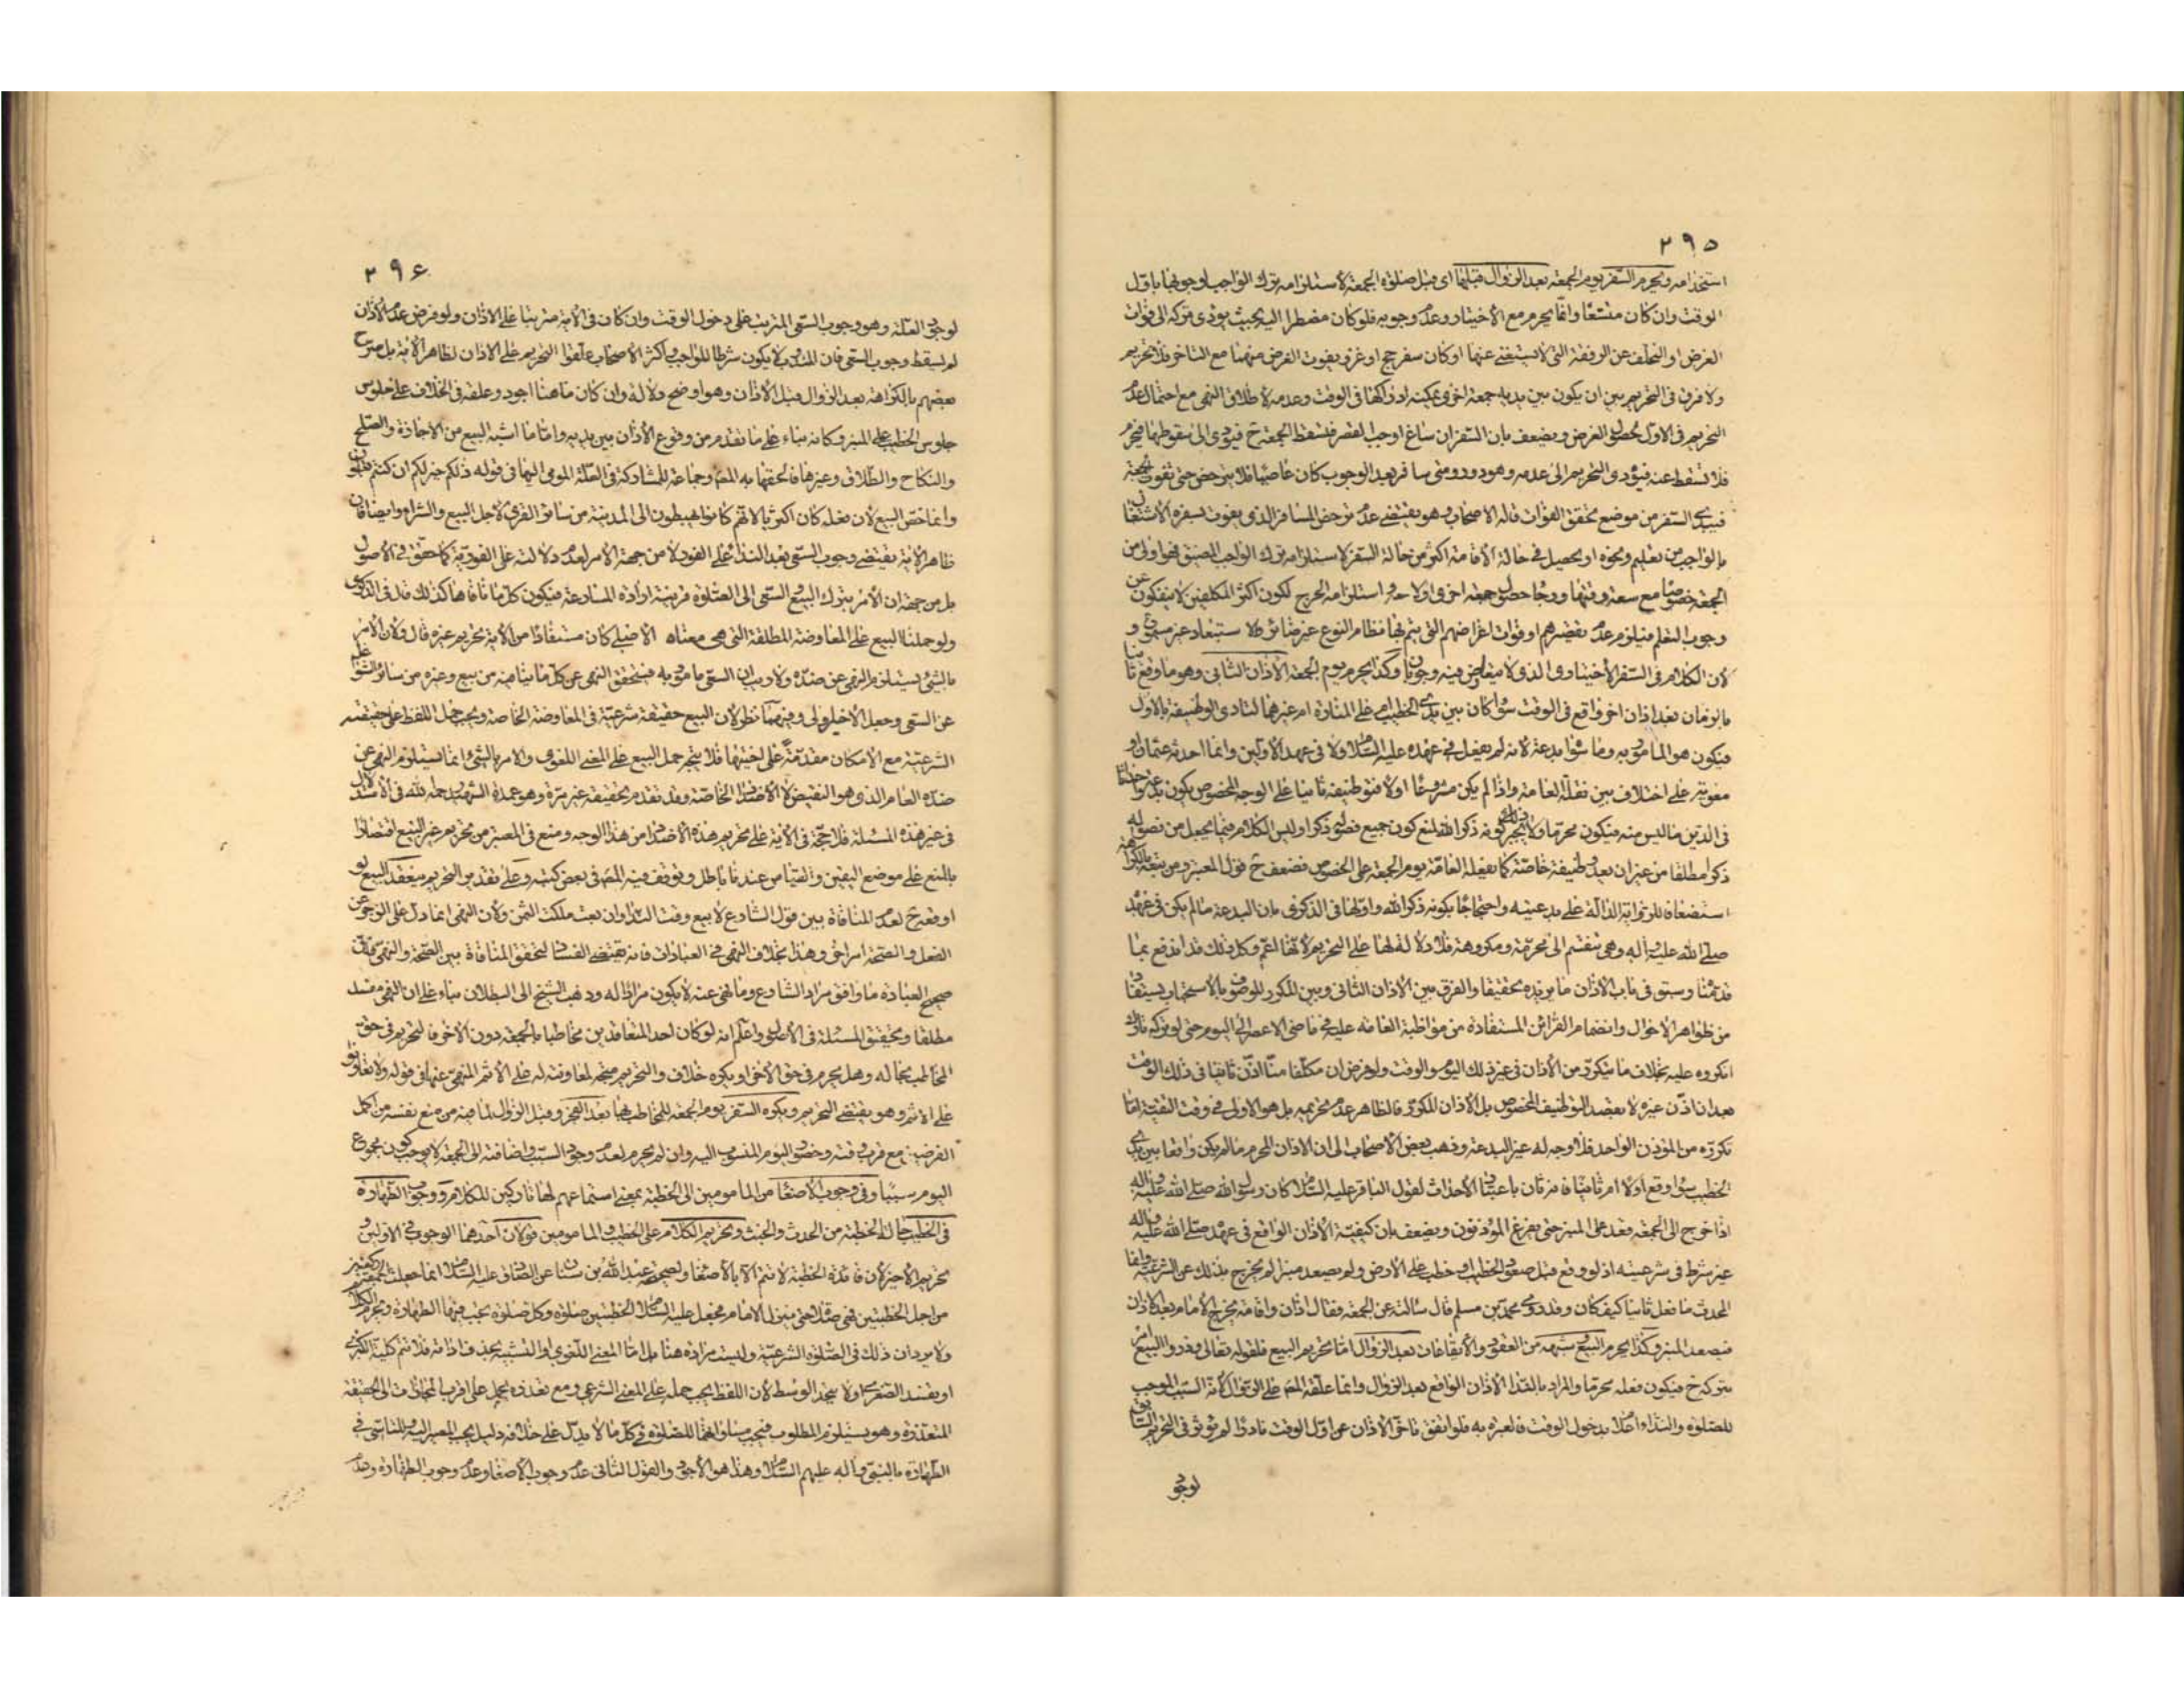 ٢٩٥
استخدامه ويحرم السفر يوم الجمعة بعد الزوال قبلها اى قبل صلوة الجمعة لاستلزامه ترك الواجب لوجوبها باول
الوقت وان كان متسعا وانما يحرم مع الاختيار وعدم وجوبه فلو كان مضطرا اليه بحيث يؤدى تركه الى فوات
الغرض او التخلف عن الرفقة التى لا يستغنى عنها او كان سفر حج او غزو يفوت الغرض منهما مع التاخر فلا تحريم
ولا فرق فى التحريم بين ان يكون بين يديه جمعة اخرى يمكنه ادراكها فى الوقت وعدمه لاطلاق النهى مع احتمال عدم
التحريم فى الاول لحصول الغرض ويضعف بان السفر ان ساغ اوجب القصر فتسقط الجمعة ح فيؤدى الى سقوطها فيحرم
فلا تسقط عنه فيؤدى التحريم الى عدمه وهو دور ومتى سافر بعد الوجوب كان عاصيا فلا يترخص حتى تفوت الجمعة
فيبتدئ السفر من موضع تحقق الفوات قاله الاصحاب وهو يقتضى عدم ترخص المسافر الذى يفوت بسفره الاشتغال
بالواجب من تعلم ونحوه او يحصل فى حالة الاقامة اكثر من حالة السفر لاستلزامه ترك الواجب المضيق فهو اولى من
الجمعة خصوصا مع سعة وقتها ورجاء حصول جمعة اخرى او لا معه واستلزامه الحرج لكون اكثر المكلفين لا ينفكون عن
وجوب التعلم فيلزم عدم تقصيرهم او فوات اغراضهم التى يتم بها نظام النوع غير ضائر فلا استبعاد غير مسموع و
لان الكلام فى السفر الاختيارى الذى لا يعارض فيه وجوبان وكذا يحرم يوم الجمعة الاذان الثانى وهو ما وقع ثانيا
بالزمان بعد اذان اخر واقع فى الوقت سواء كان بين يدى الخطيب ام على المنارة ام غيرهما لتادى الوظيفة بالاول
فيكون هو المامور به وما سواه بدعة لانه لم يفعل فى عهده عليه السلام ولا فى عهد الاولين وانما احدثه عثمان او
معوية على اختلاف بين نقلة العامة واذا لم يكن مشروعا اولا فتوظيفه ثانيا على الوجه المخصوص يكون بدعة وادخالا
فى الدين ما ليس منه فيكون محرما ولا يخرجه عن ذلك كونه ذكرا لله لمنع كون جميع فصوله ذكرا وليس الكلام فيما يجعل من فصوله
ذكرا مطلقا من غير ان يعد وظيفة خاصة كما يفعله العامة يوم الجمعة على الخصوص فضعف ح قول المعتبر ومن تبعه بالكراهة
استضعافا للرواية الدالة على بدعيته واحتجاجا بكونه ذكرا لله واولها فى الذكرى بان البدعة ما لم يكن فى عهده
صلى الله عليه واله وهى تنقسم الى محرمة ومكروهة فلا دلالة لها على التحريم لانها اعم وكل ذلك قد اندفع بما
قدمنا وسبق فى باب الاذان ما يزيده تحقيقا والفرق بين الاذان الثانى وبين المكرر للوضوء بالاستحباب يستفاد
من ظواهر الاحوال وانضمام القرائن المستفادة من مواظبة العامة عليه فى ماضى الاعصار الى اليوم حتى لو تركه تارك
انكروه عليه بخلاف ما يتكرر من الاذان فى غير ذلك اليوم والوقت ولو فرض ان مكلفا منا اذن ثانيا فى ذلك الوقت
بعد ان اذن غيره لا بقصد التوظيف المخصوص بل الاذان المكرر فالظاهر عدم تحريمه بل هو الاولى فى وقت التقية اما
تكرره من المؤذن الواحد فلا وجه له غير البدعة وذهب بعض الاصحاب الى ان الاذان المحرم ما لم يكن واقعا بين يدى
الخطيب سواء وقع اولا ام ثانيا فانه ثان باعتبار الاحداث لقول الباقر عليه السلام كان رسول الله صلى الله عليه واله
اذا خرج الى الجمعة قعد على المنبر حتى يفرغ المؤذنون ويضعف بان كيفية الاذان الواقع فى عهده صلى الله عليه واله
غير شرط فى شرعيته اذ لو وقع قبل صعود الخطيب او خطب على الارض ولم يصعد منبرا لم يخرج بذلك عن الشرعية وانما
المحدث ما فعل ثانيا كيف كان وقد روى محمد بن مسلم قال سالته عن الجمعة فقال اذان واقامة يخرج الامام بعد الاذان
فيصعد المنبر وكذا يحرم البيع وشبهه من العقود والايقاعات بعد الزوال اما تحريم البيع فلقوله تعالى وذروا البيع امر
بتركه ح فيكون فعله محرما والمراد بالنداء الاذان الواقع بعد الزوال وانما علقه المص على الزوال لانه السبب الموجب
للصلوة والنداء اعلام بدخول الوقت فالعبرة به فلو اتفق تاخر الاذان عن اول الوقت نادرا لم يؤثر فى التحريم السابق
لوجود
٢٩۶
لوجود العلة وهو وجوب السعى المترتب على دخول الوقت وان كان فى الاية مترتبا على الاذان ولو فرض عدم الاذان
لم يسقط وجوب السعى فان المندوب لا يكون شرطا للواجب واكثر الاصحاب علقوا التحريم على الاذان لظاهر الاية بل صرح
بعضهم بالكراهة بعد الزوال قبل الاذان وهو اوضح دلالة وان كان ما هنا اجود وعلقه فى الخلاف على جلوس
جلوس الخطيب على المنبر وكانه بناء على ما تقدم من وقوع الاذان بين يديه واما ما اشبه البيع من الاجارة والصلح
والنكاح والطلاق وغيرها فالحقها به المص وجماعة للمشاركة فى العلة المومى اليها فى قوله ذلكم خير لكم ان كنتم تعلمون
وانما خص البيع لان فعله كان اكثريا لانهم كانوا يهبطون الى المدينة من سائر القرى لاجل البيع والشراء وايضا فان
ظاهر الاية يقتضى وجوب السعى بعد النداء على الفور لا من جهة الامر لعدم دلالته على الفورية كما حقق فى الاصول
بل من جهة ان الامر بترك البيع والسعى الى الصلوة قرينة ارادة المسارعة فيكون كل ما نافاها كذلك قال فى الذكرى
ولو حملنا البيع على المعاوضة المطلقة التى هى معناه الاصلى كان مستفادا من الاية تحريم غيره قال ولان الامر
بالشئ يستلزم النهى عن ضده ولا ريب ان السعى مامور به فيتحقق النهى عن كل ما ينافيه من بيع وغيره من سائر الشواغل
عن السعى وجعل الاخير اولى وفيهما نظر لان البيع حقيقة شرعية فى المعاوضة الخاصة ويجب حمل اللفظ على حقيقته
الشرعية مع الامكان مقدمة على اختيها فلا يتجه حمل البيع على المعنى اللغوى والامر بالشئ انما يستلزم النهى عن
ضده العام الذى هو النقيض لا الاضداد الخاصة وقد تقدم تحقيقه غير مرة وهو عمدة الشهيد رحمه الله فى الاستدلال
فى غير هذه المسئلة فلا حجة فى الاية على تحريم هذه الاضداد من هذا الوجه ومنع فى المعتبر من تحريم غير البيع اقتصارا
بالمنع على موضع اليقين والقياس عندنا باطل وتوقف فيه المص فى بعض كتبه وعلى تقدير التحريم ينعقد البيع لو
اوقعه ح لعدم المنافاة بين قول الشارع لا تبع وقت النداء وان بعت ملكت الثمن ولان النهى انما دل على الزجر عن
الفعل والصحة امر اخر وهذا بخلاف النهى فى العبادات فانه يقتضى الفساد لتحقق المنافاة بين الصحة والنهى فان
صحيح العبادة ما وافق مراد الشارع وما نهى عنه لا يكون مرادا له وذهب الشيخ الى البطلان بناء على ان النهى مفسد
مطلقا وتحقيق المسئلة فى الاصول واعلم انه لو كان احد المتعاقدين مخاطبا بالجمعة دون الاخر فالتحريم فى حق
المخاطب بحاله وهل يحرم فى حق الاخر او يكره خلاف والتحريم متجه لمعاونته له على الاثم المنهى عنها فى قوله ولا تعاونوا
على الاثم وهو يقتضى التحريم ويكره السفر يوم الجمعة للمخاطب بها بعد الفجر وقبل الزوال لما فيه من منع نفسه من اكمل
الفرضين مع قرب وقته وحضور اليوم المنسوب اليه وان لم يحرم لعدم وجود السبب واضافته الى الجمعة لا يوجب كون مجموع
اليوم سببا وفى وجوب الاصغاء من المامومين الى الخطبة بمعنى استماعهم لها تاركين للكلام ووجوب الطهارة
فى الخطيب حالة الخطبة من الحدث والخبث وتحريم الكلام على الخطيب والمامومين قولان احدهما الوجوب فى الاولين و
تحريم الاخير لان فائدة الخطبة لا تتم الا بالاصغاء ولصحيحة عبد الله بن سنان عن الصادق عليه السلام انما جعلت الجمعة ركعتين
من اجل الخطبتين فهى صلاة حتى ينزل الامام فجعل عليه السلام الخطبتين صلوة وكل صلوة يجب فيها الطهارة ويحرم الكلام
ولا يرد ان ذلك فى الصلوة الشرعية وليست مرادة هنا بل اما المعنى اللغوى او التشبيه بحذف اداته فلا تتم كلية الكبرى
او يفسد الصغرى اولا يتحد الوسط لان اللفظ يجب حمله على المعنى الشرعى ومع تعذره يحمل على اقرب المجازات الى الحقيقة
المتعذرة وهو يستلزم المطلوب فيجب مساواتهما للصلوة فى كل ما لا يدل على خلافه دليل يجب المصير اليه وللتاسى فى
الطهارة بالنبى واله عليهم السلام وهذا هو الاجود والقول الثانى عدم وجوب الاصغاء وعدم وجوب الطهارة وعدم